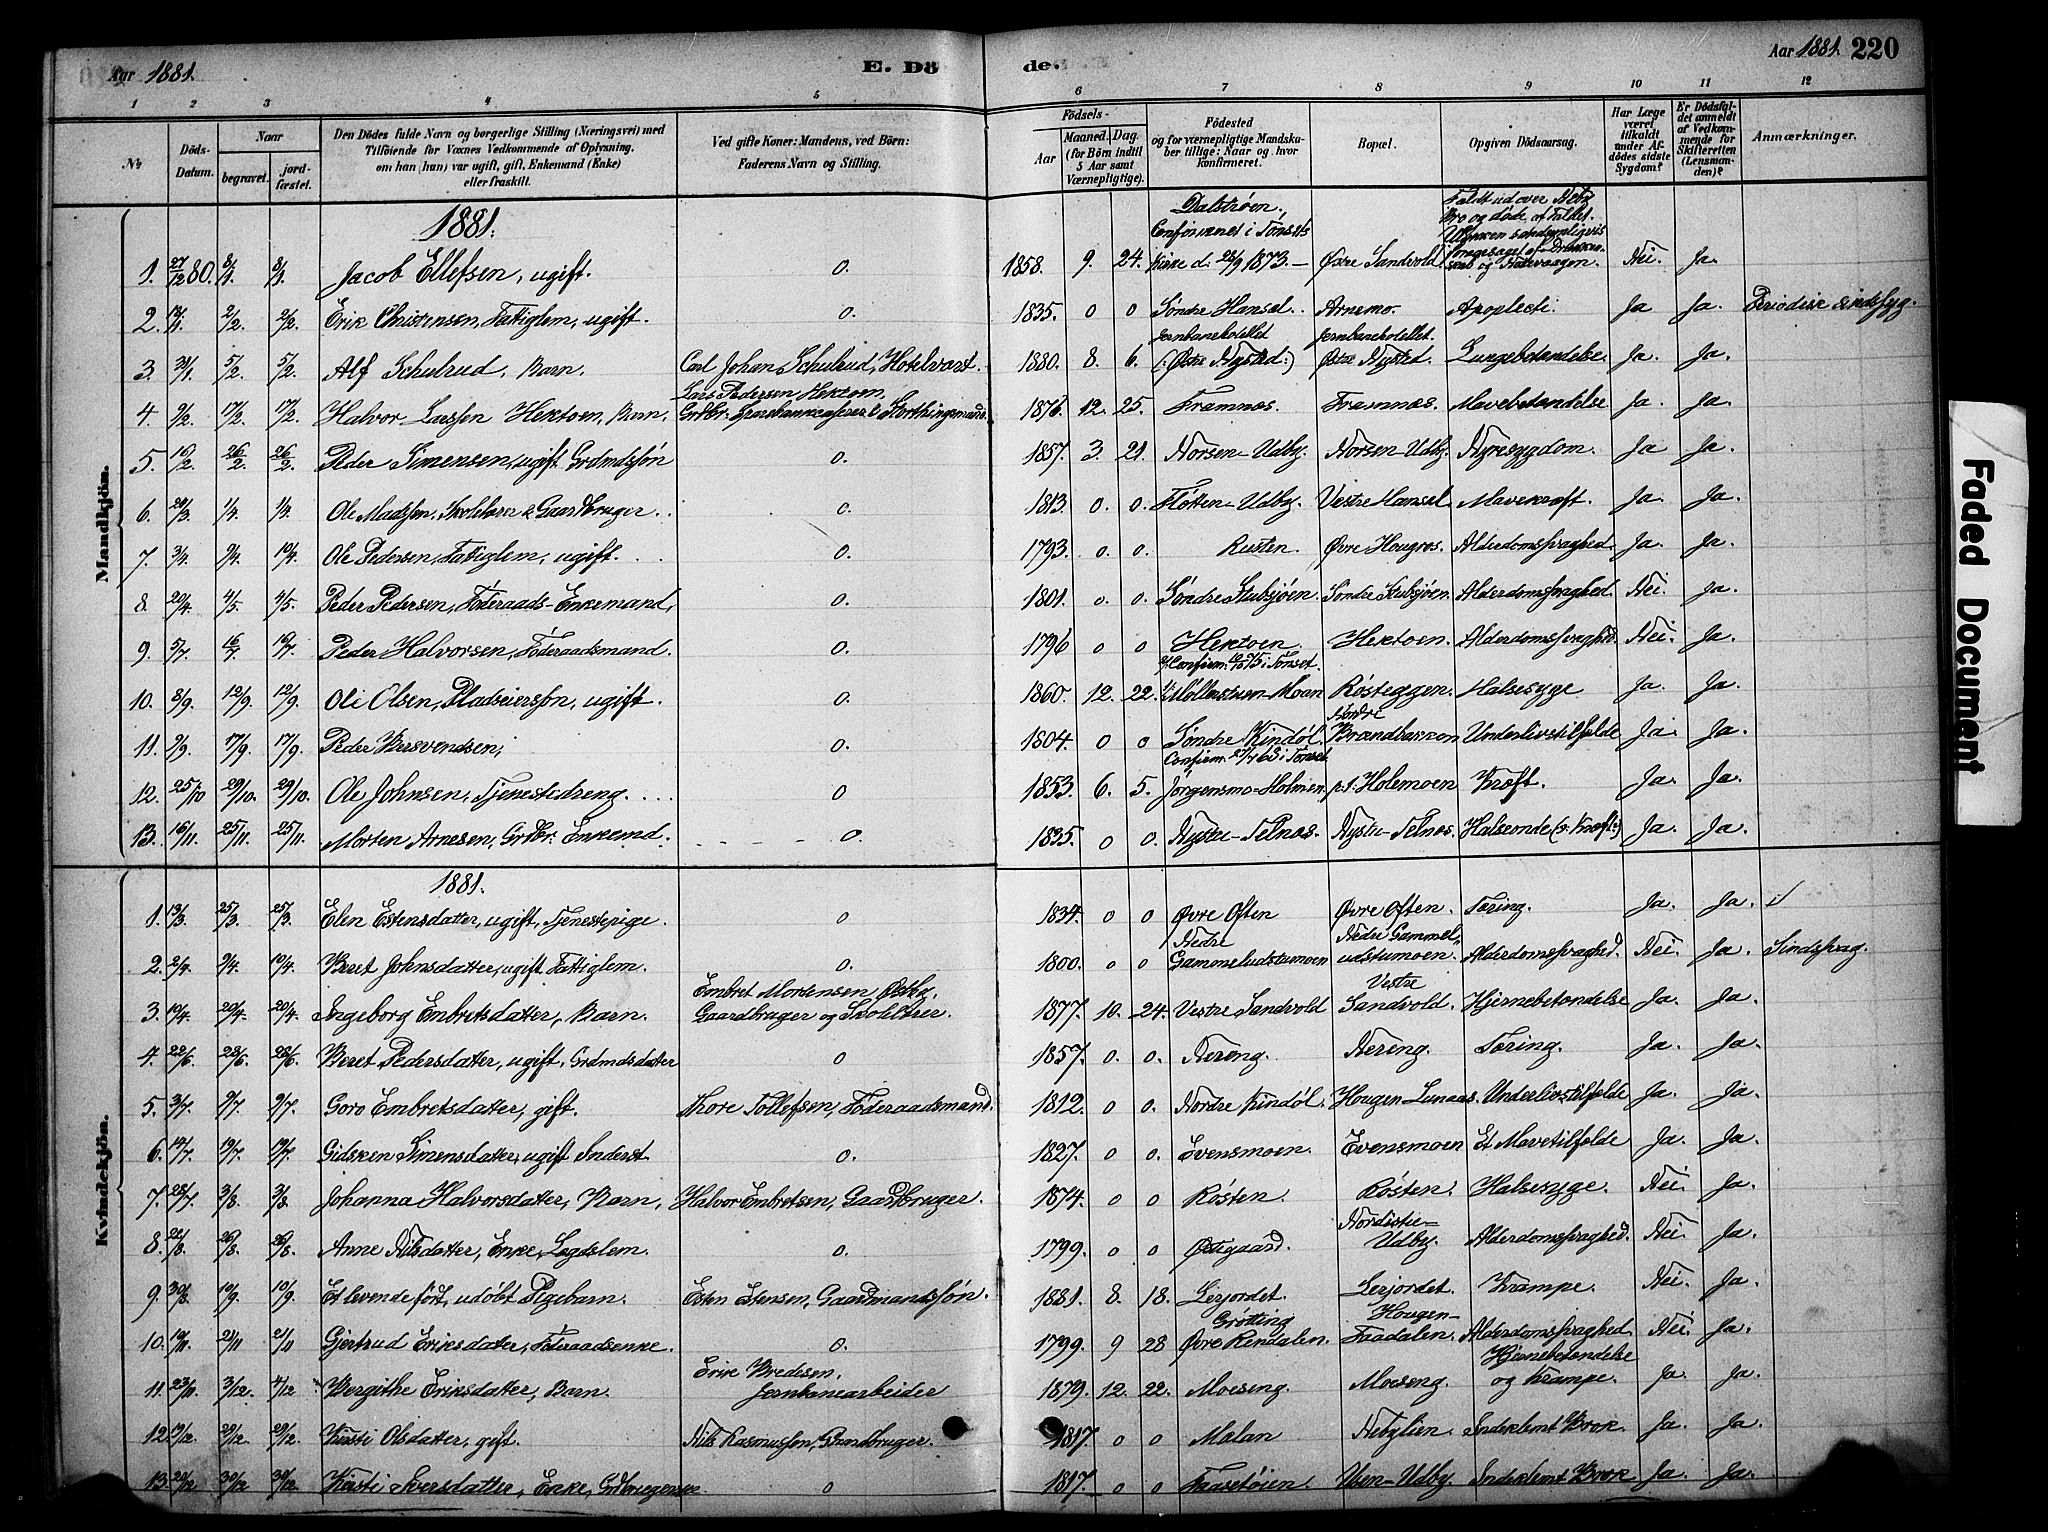 Aar 1881.
E. Dö
de.
Aar 1881. 220
1 2 3 4 5 6 7 8 9 10 11 12
№
Döds-Datum.
Naar
begravet.
jord-fæstet.
Den Dödes fulde Navn og borgerlige Stilling (Næringsvei) med
Tilföiende for Voxnes Vedkommende af Oplysning,
om han (hun) var ugift, gift, Enkemand (Enke)
eller fraskilt.
Ved gifte Koner: Mandens, ved Börn:
Faderens Navn og Stilling.
Födsels-
Aar
Maaned. Dag.
(for Börn indtil
5 Aar samt
Værnepligtige).
Födested
og for værnepligtige Mandska-
ber tillige: Naar og hvor
konfirmeret.
Bopæl.
Opgiven Dödsaarsag.
Har Læge
været
tilkaldt
under Af-
dödes sidste
Sygdom?
Er Dödsfal-
det anmeldt
af Vedkom-
mende for
Skifteretten
(Lensman-
den)?
Anmærkninger.
Mandkjön.
1881.
1. 27/12 80. 8/1 8/1 Jacob Ellefsen, ugift. 0. 1858. 9. 24. Dalstrøen. Confirmeret i Tønsets Kirke d. 28/9 1873.— Øvre Sandvold Faldt ud over Bro og døde af Faldet. Nei. Ja.
2. 2/2 2/2 Erik Christensen, Fattiglem, ugift. 0. 1835. 0 0 Søndre Hansel. Arnemo. Apoplecti. Ja Ja. Periodisk sindssyg.
3. 31/1 5/2 5/2 Alf Schulrud, Barn. Carl Johan Schulrud, Hotelvært. 1880. 8. 6. Jernbanehotellet (: Østre Nysted:) Jernbanehotellet. Østre Nysted. Lungebetændelse Ja. Ja.
4. 9/2 17/2 17/2 Halvor Larssen Hektoen, Barn. Lars Pedersen Hektoen, Grdbr. Sparebankkasserer & Storthingsmand. 1876. 12. 25. Framnæs. Framnæs. Mavebetændelse Ja. Ja.
5. 16/2 26/2 26/2 Peder Simensen, ugift Grdmdssøn 0. 1857. 3. 21. Norsen-Udby. Norsen-Udby. Nyresygdom. Ja Ja.
6. 24/3 1/4 1/4 Ole Madssen, Skolelærer & Gaardbruger. 0. 1813. 0. 0. Fløtten-Udby. Vestre Hansel. Mavekræft. Ja. Ja.
7. 3/4 9/4 10/4 Ole Pedersen, Fattiglem, ugift. 0. 1793. 0. 0. Rusten. Øvre Hougros. Alderdomssvaghed. Ja. Ja.
8. 20/4 4/5 4/5 Peder Pedersen, Føderaads-Enkemand, 0. 1801. 0. 0. Søndre Stubsjøen. Søndre Stubsjøen. Alderdomssvaghed. Nei. Ja.
9. 5/7 16/7 16/7 Peder Halvorsen, Føderaadsmand. 0. 1796 0 0 Hektoen. Hektoen. Alderdomssvaghed. Nei. Ja.
10. 8/9 12/9 12/9 Ole Olsen, Pladseiersøn, ugift. 0. 1860. 12. 22. Confirm. 10/10 75 i Tønset. Møllerstuen-Moen Røsteggen. Halsesyge Ja. Ja.
11. 9/9 17/9 17/9 Peder Bersvendsen, 0. 1804. 0 0 Søndre Kindøl. Nordre Brændbakken Underlivstilfælde Ja. Ja.
12. 25/10 29/10. 29/10. Ole Johnsen, Tjenestedreng.... 0 1853. 6. 5. Confirm. 27/9 68 i Tønset. Jørgensmo-Holmen p.t. Holemoen Kræft. Ja. Ja.
13. 16/11 25/11 25/11 Morten Arnesen, Grdbr. Enkemd. 0. 1835. 0 0. Nystu-Telnæs. Nystu-Telnæs. Halsonde (: Kræft:) Ja. Ja.
Kvindekjön.
1881.
1. 13/3 25/3 25/3 Elen Estensdatter, ugift, Tjenestepige. 0 1834. 0 0 Øvre Often Øvre Often. Tæring. Ja. Ja.
2. 2/4 9/4 10/4 Beret Johnsdatter, ugift Fattiglem. 0. 1800. 0 0 Nedre Gammeludstumoen Nedre Gammel-udstumoen. Alderdomssvaghed. Nei. Ja. Sindssvag.
3. 10/4 20/4 20/4 Ingeborg Embretsdatter, Barn. Embret Mortensen Østby, Gaardbruger og Skolelærer. 1877. 10. 24. Vestre Sandvold Vestre Sandvold. Hjernebetændelse Ja. Ja.
4. 22/6 28/6 28/6 Beret Pedersdatter, ugift, Grdmdsdatter 0 1857. 0. 0. Nereng. Nereng. Tæring. Ja. Ja.
5. 3/7 9/7 9/7 Goro Embretsdatter, gift. Thore Tollefsen, Føderaadsmand. 1812. 0 0. Nordre Kindøl. Hougen Lunaas. Underlivstilfælde Ja. Ja.
6. 14/7 19/7 19/7 Gidsken Simensdatter, ugift Inderst 0. 1827. 0 0. Evensmoen. Evensmoen Et Mavetilfælde Ja. Ja.
7. 28/7 3/8 3/8 Johanna Halvorsdatter, Barn, Halvor Embretsen, Gaardbruger. 1874. 0 0 Røsten Røsten. Halsesyge. Nei. Ja.
8. 22/8 26/8 26/8 Anne Nilsdatter, Enke, Lægdslem. 0. 1799. 0 0 Østgaard. Nordistu-Udby. Alderdomssvaghed. Nei. Ja.
9. 30/8 10/9 10/9 Et levende født, udøbt Pigebarn. Esten Estensen, Gaardmandssøn. 1881. 8. 18. Lerjordet. Lerjordet. Krampe. Nei. Ja.
10. 19/11 21/11 Gjertrud Eriksdatter, Føderaadsenke. 0. 1799. 9 28 Grøtting Øvre Rendalen. Hougen-Faadalen. Alderdomssvaghed Nei. Ja.
11. 23/11 3/12. 4/12 Bergithe Eriksdatter, Barn. Erik Bredesen, Jernbanearbeider 1879. 12. 22. Moeseng. Moeseng. Hjernebetændelse og Krampe. Ja. Ja.
12. 19/12 29/12 29/12 Kirsti Olsdatter, gift. Nils Rasmussen, Gaardbruger. 1817. 0 0 Malan Nebylien. Indeklemt Brok. Ja. Ja.
13. 20/12 30/12 30/12 Kirsti Iversdatter, Enke, 0 1817. 0 0 Faasetøien. Usen-Udby. Indeklemt Brok Ja. Ja.
Faded Document